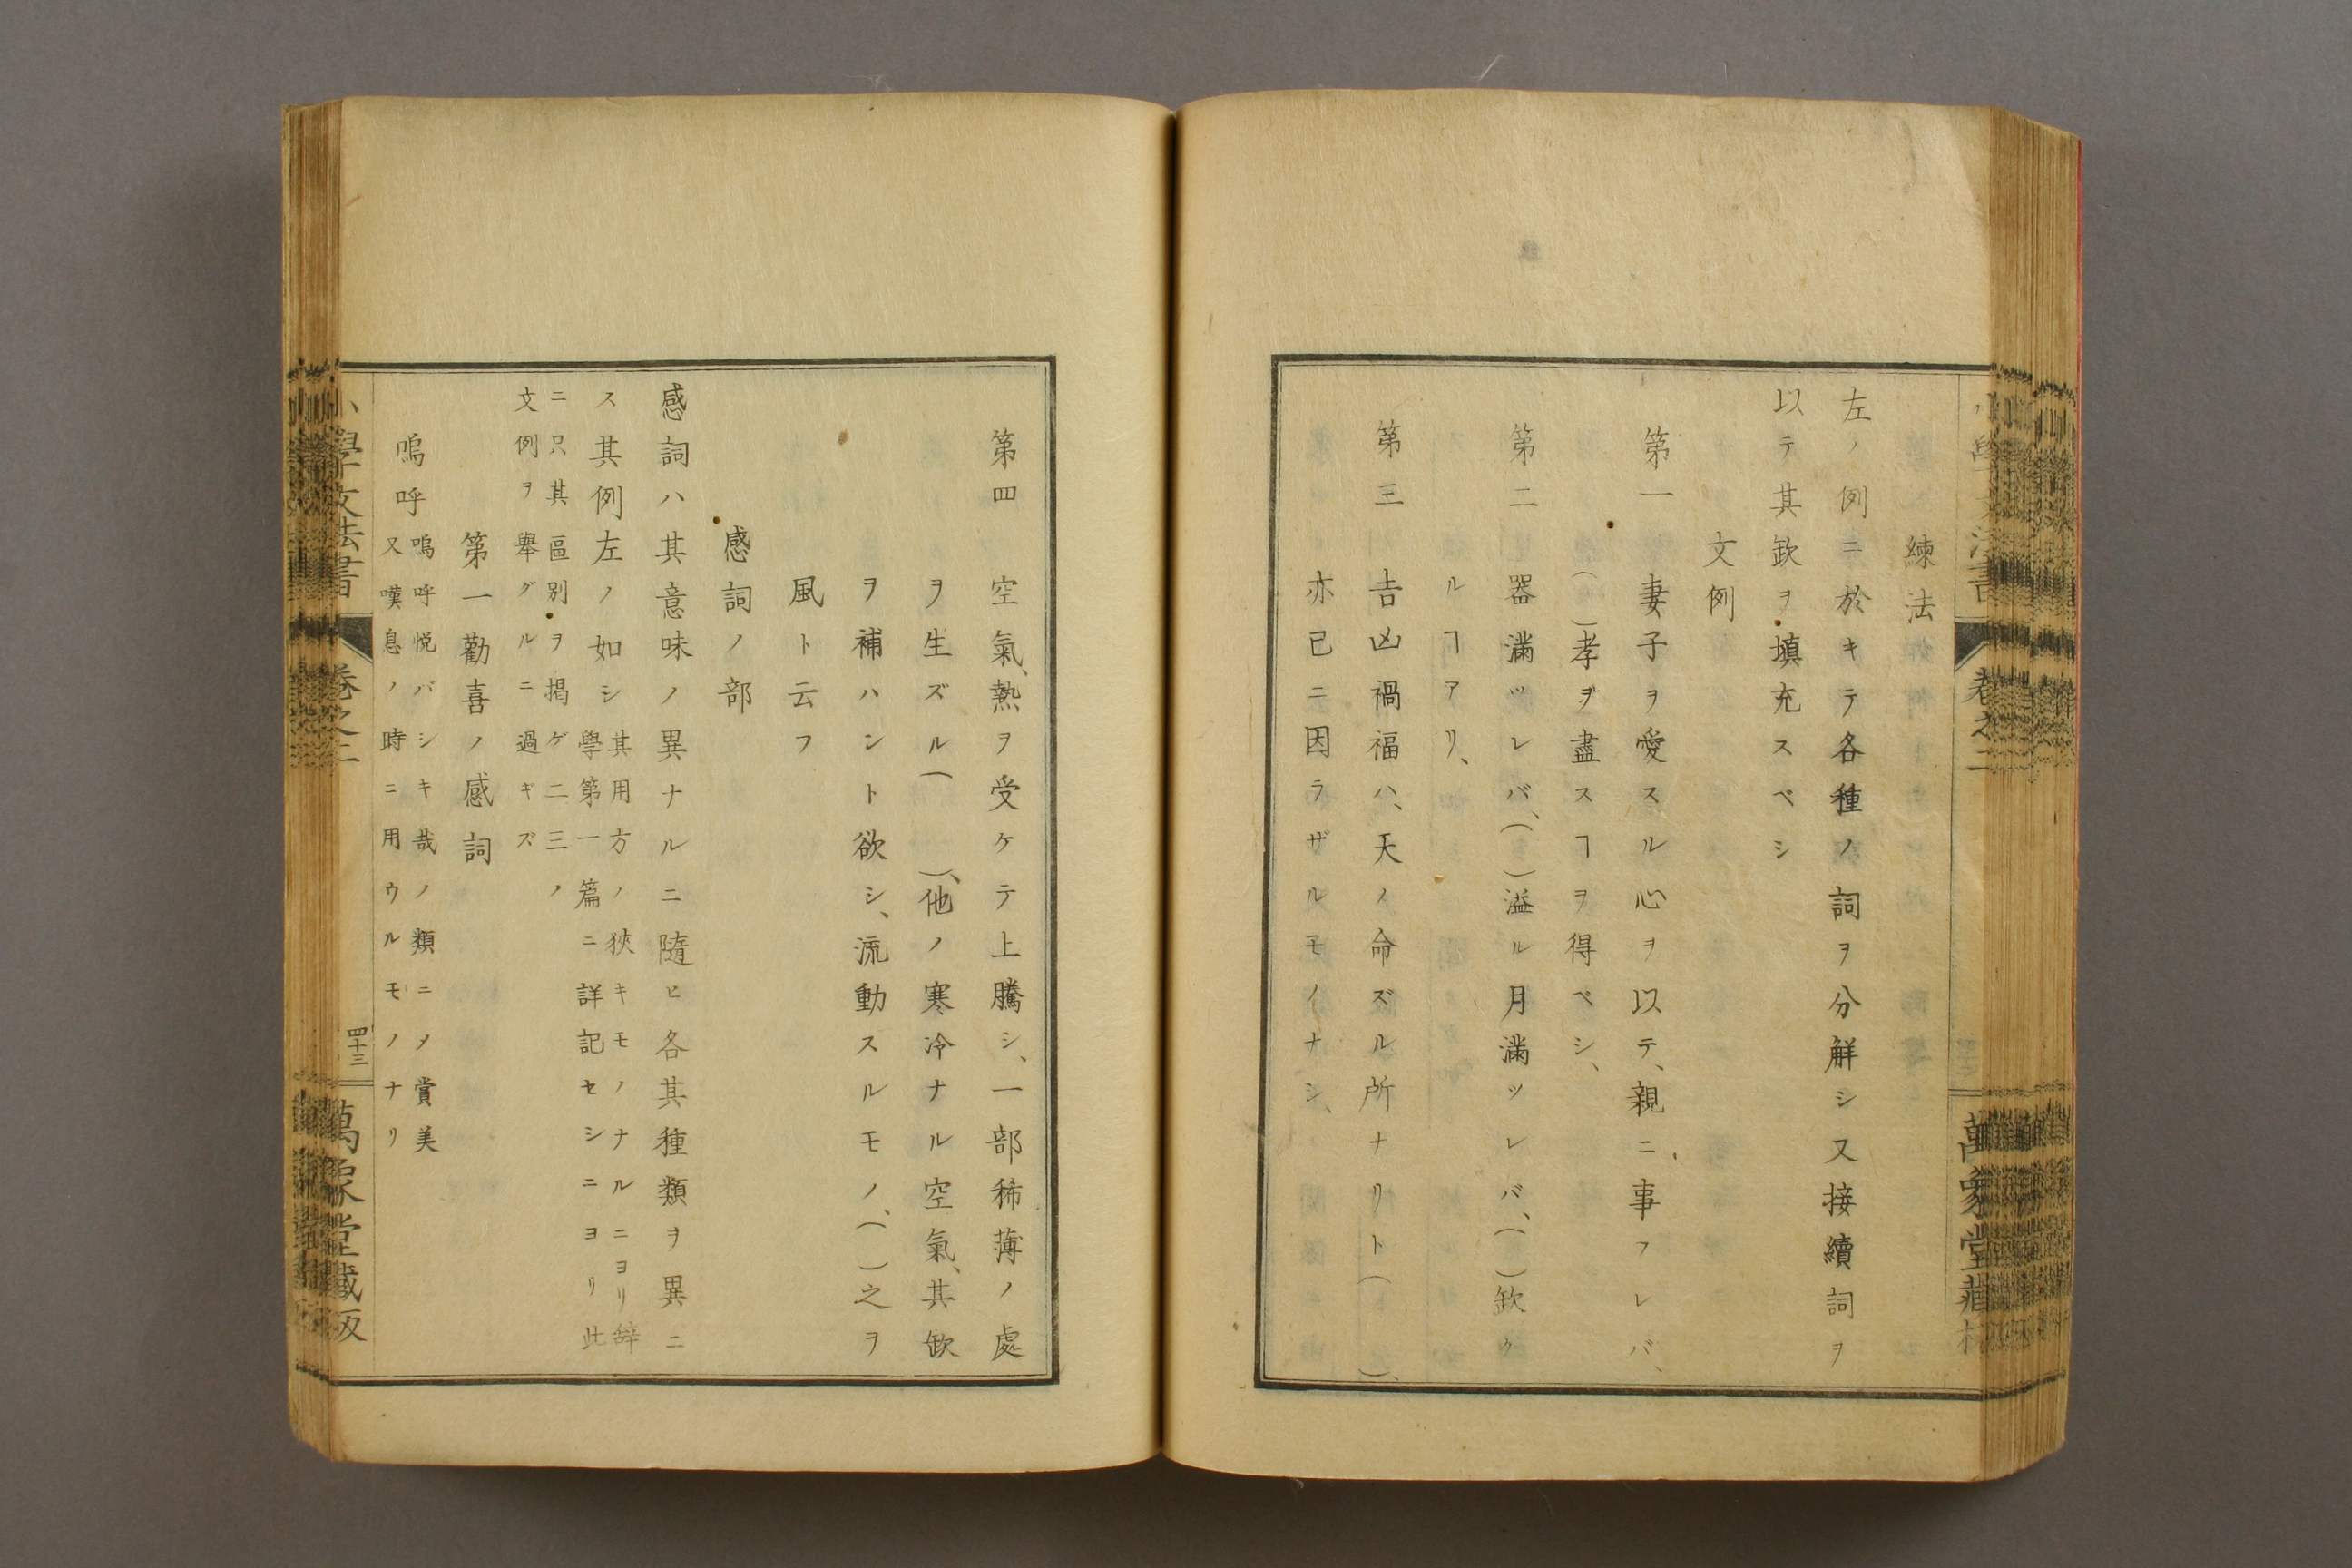 練法
左ノ例ニ於キテ各種ノ詞ヲ分解シ又接續詞ヲ
以テ其欽ヲ填充スベシ
文例
第一 妻子ヲ愛スル心ヲ以テ、親ニ事フレバ、
( )孝ヲ盡スヿヲ得ベシ、
第二 器滿ツレバ、( )溢ル月滿ツレバ、( )欽ク
ルヿアリ、
第三 吉凶禍福ハ、天ノ命ズル所ナリト( )、
亦已ニ因ラザルモノナシ、
第四 空氣、熱ヲ受ケテ上騰シ、一部稀薄ノ處
ヲ生ズル( )、他ノ寒冷ナル空氣、其缼
ヲ補ハント欲シ、流動スルモノ、( )之ヲ
風ト云フ
感詞ノ部
感詞ハ其意味ノ異ナルニ隨ヒ各其種類ヲ異ニ
ス其例左ノ如シ
其用方ノ狹キモノナルニヨリ辭
學第一篇ニ詳記セシニヨリ此
ニ只其區別ヲ揭ゲ二三ノ
文例ヲ舉グルニ過ギズ
第一勸喜ノ感詞
嗚呼
嗚呼悦バシキ哉ノ類ニ〆賞美
又嘆息ノ時ニ用ウルモノナリ
小學文法書 卷之二 四十三 萬象堂藏板